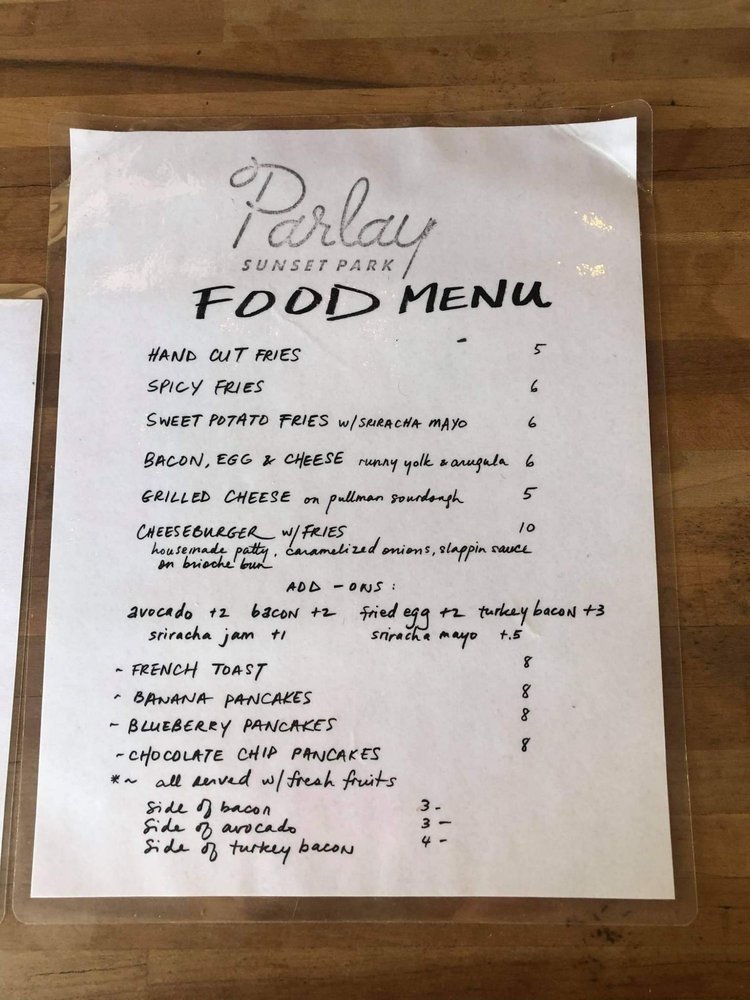 Parlay
SUNSET PARK
FOOD MENU
HAND CUT FRIES 5
SPICY FRIES 6
SWEET POTATO FRIES w/SRIRACHA MAYO 6
BACON, EGG & CHEESE runny yolk & arugula 6
GRILLED CHEESE on pullman sourdough 5
CHEESEBURGER w/FRIES 10
housemade patty, caramelized onions, slappin sauce
on brioche bun
ADD-ONS:
avocado +2 bacon +2 fried egg +2 turkey bacon +3
sriracha jam +1 sriracha mayo +.5
~ FRENCH TOAST 8
~ BANANA PANCAKES 8
~ BLUEBERRY PANCAKES 8
~ CHOCOLATE CHIP PANCAKES 8
*~ all served w/fresh fruits
Side of bacon 3-
Side of avocado 3-
Side of turkey bacon 4-